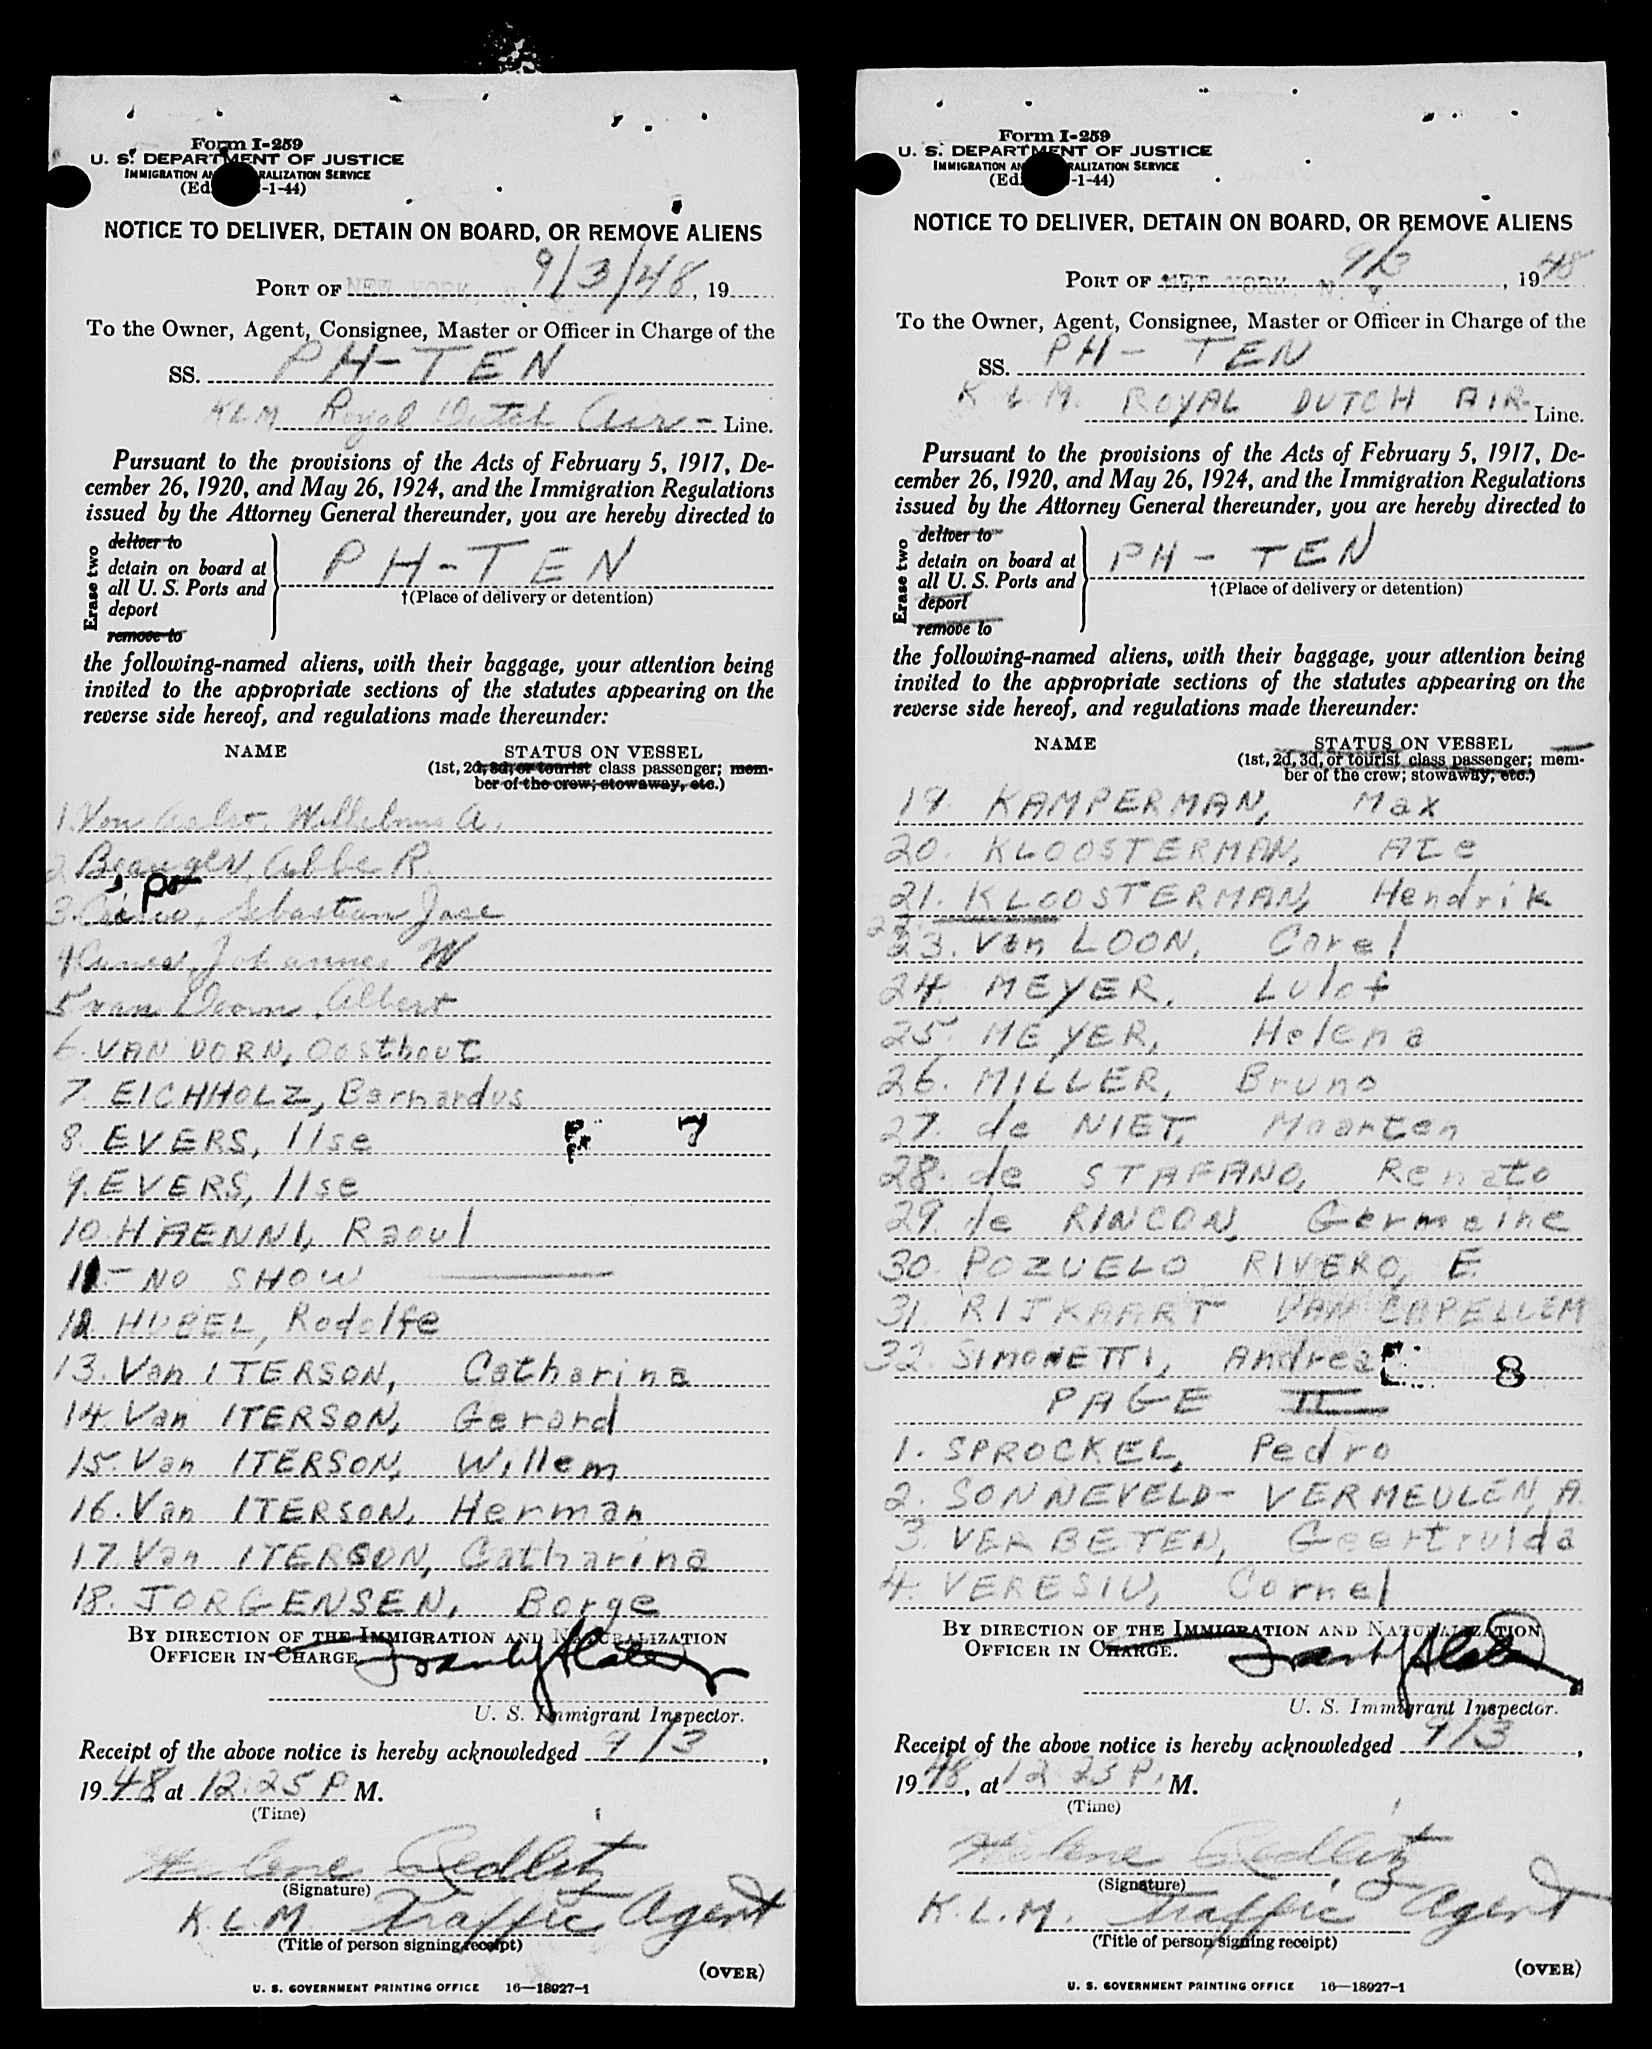 Form I-259
U. S. DEPARTMENT OF JUSTICE
IMMIGRATION AN RALIZATION SERVICE
(Ed -1-44)
NOTICE TO DELIVER, DETAIN ON BOARD, OR REMOVE ALIENS
PORT OF NEW YORK, N. 9/3/48, 19
To the Owner, Agent, Consignee, Master or Officer in Charge of the
SS. PH-TEN
KLM Royal Dutch Air- Line.
Pursuant to the provisions of the Acts of February 5, 1917, De-
cember 26, 1920, and May 26, 1924, and the Immigration Regulations
issued by the Attorney General thereunder, you are hereby directed to
Erase two
deliver to
detain on board at
all U. S. Ports and
deport
remove to
PH-TEN
†(Place of delivery or detention)
the following-named aliens, with their baggage, your attention being
invited to the appropriate sections of the statutes appearing on the
reverse side hereof, and regulations made thereunder:
NAME STATUS ON VESSEL
(1st, 2d, 3d, or tourist class passenger; mem-
ber of the crew; stowaway, etc.)
1. Von A.
2 R.
3. Sebastian Jose
4 Johannes W
5 van Doorn, Albert
6. VAN DORN, Oosthout
7. EICHHOLZ, Bernardus
8. EVERS, Ilse 7
9. EVERS, Ilse
10. HAENNI, Raoul
11.- NO SHOW
12. HUBEL, Rodolfe
13. Van ITERSON, Catharina
14. Van ITERSON, Gerard
15. Van ITERSON, Willem
16. Van ITERSON, Herman
17. Van ITERSON, Catharina
18. JORGENSEN, Borge
BY DIRECTION OF THE IMMIGRATION AND NATURALIZATION
OFFICER IN CHARGE
U. S. Immigrant Inspector.
Receipt of the above notice is hereby acknowledged 9/3,
1948, at 12.25 P M.
(Time)
Helene Redlitz
(Signature)
K.L.M. Traffic Agent
(Title of person signing receipt)
(OVER)
U. S. GOVERNMENT PRINTING OFFICE 16—18927-1
Form I-259
U. S. DEPARTMENT OF JUSTICE
IMMIGRATION AN RALIZATION SERVICE
(Edi -1-44)
NOTICE TO DELIVER, DETAIN ON BOARD, OR REMOVE ALIENS
PORT OF NEW YORK, N. Y. 9/3, 1948
To the Owner, Agent, Consignee, Master or Officer in Charge of the
SS. PH- TEN
K.L.M. ROYAL DUTCH AIR- Line.
Pursuant to the provisions of the Acts of February 5, 1917, De-
cember 26, 1920, and May 26, 1924, and the Immigration Regulations
issued by the Attorney General thereunder, you are hereby directed to
Erase two
deliver to
detain on board at
all U. S. Ports and
deport
remove to
PH - TEN
†(Place of delivery or detention)
the following-named aliens, with their baggage, your attention being
invited to the appropriate sections of the statutes appearing on the
reverse side hereof, and regulations made thereunder:
NAME STATUS ON VESSEL
(1st, 2d, 3d, or tourist class passenger; mem-
ber of the crew; stowaway, etc.)
19. KAMPERMAN, Max
20. KLOOSTERMAN, Ate
21. KLOOSTERMAN, Hendrik
23. Van LOON, Carel
24. MEYER, Lulof
25. MEYER, Helena
26. MILLER, Bruno
27. de NIET, Maarten
28. de STAFANO, Renato
29. de RINCON, Germaine
30. POZUELO RIVERO, E.
31. RIJKAART VAN CAPELLEM
32. SIMONETTI, Andrea 8
PAGE II
1. SPROCKEL, Pedro
2. SONNEVELD- VERMEULEN, A.
3. VERBETEN, Geertruida
4. VERESIU, Cornel
BY DIRECTION OF THE IMMIGRATION AND NATURALIZATION
OFFICER IN CHARGE.
U. S. Immigrant Inspector.
Receipt of the above notice is hereby acknowledged 9/3,
1948, at 12 23 P. M.
(Time)
Helene Redlitz
(Signature)
K.L.M. Traffic Agent
(Title of person signing receipt)
(OVER)
U. S. GOVERNMENT PRINTING OFFICE 16—18927-1